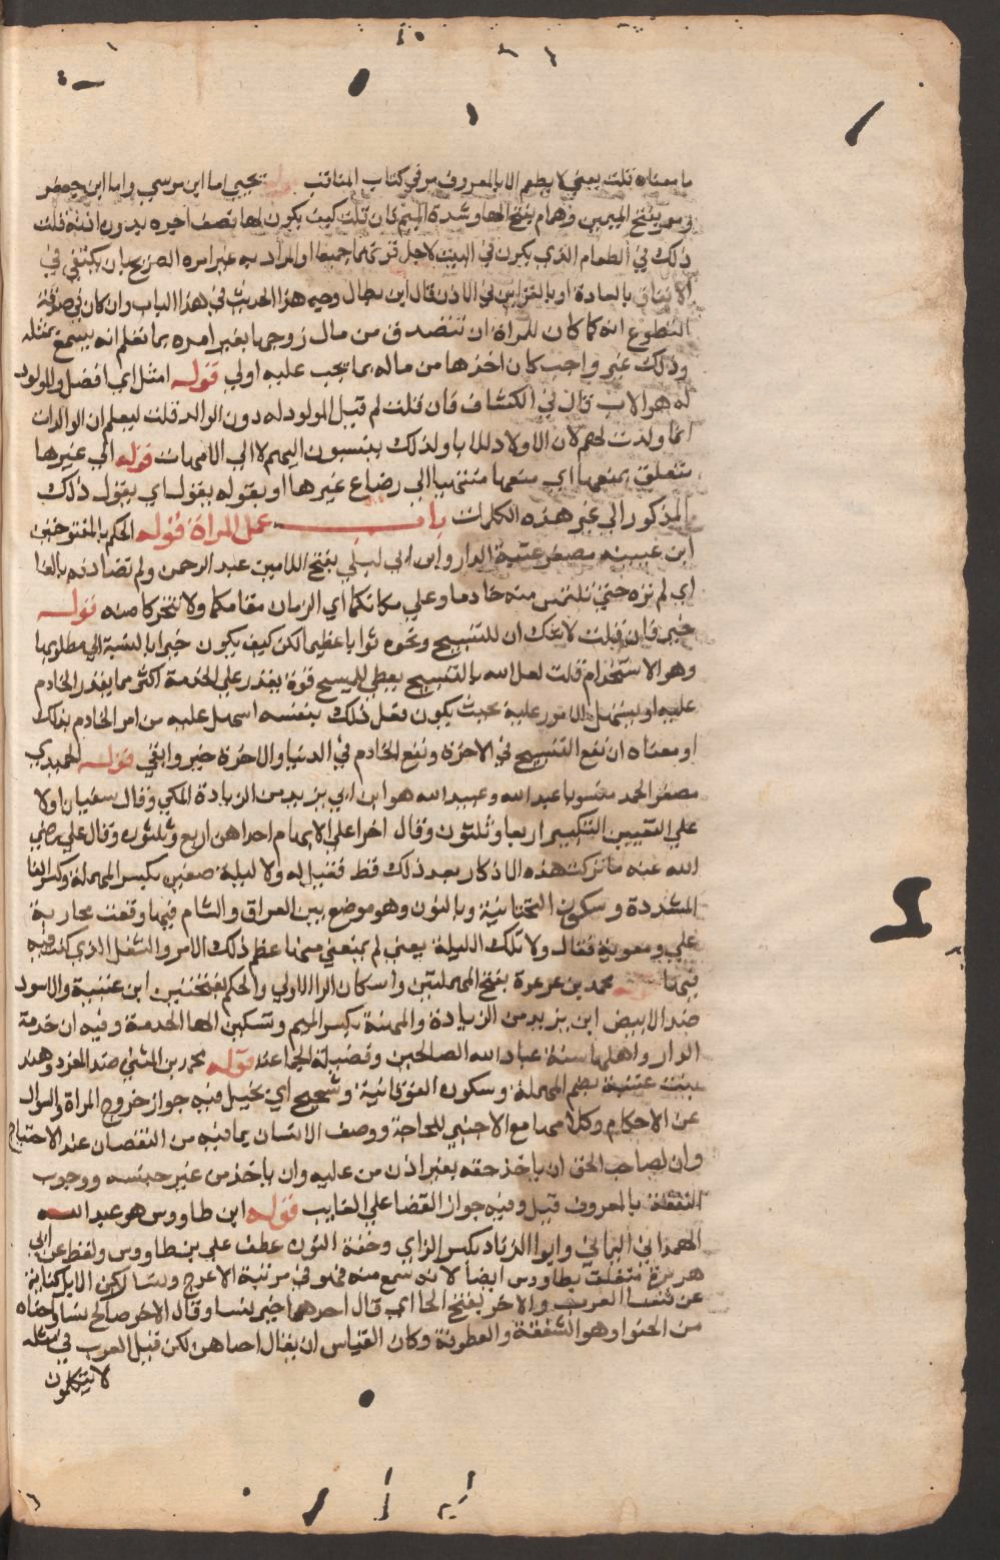 ما معناه قلت يعني لا يطعم الا بالمعروف مر في كتاب المناقب قوله يحيى اما ابن موسى واما ابن جعفر
ومعمر بفتح الميمين وهمام بفتح الها وشدة الميم فان قلت كيف يكون لها نصف اجره بدون اذنه قلت
ذلك في الطعام الذي يكون في البيت لاجل قوتهما جميعا او المراد به غير امره الصريح بان يكتفي في
الانفاق بالعادة او بالقراين في الاذن قال ابن بطال وجه هذا الحديث في هذا الباب وان كان في صدقة
التطوع انه كما كان للمراة ان تتصدق من مال زوجها بغير امره بما تعلم انه يسمح بمثله
وذلك غير واجب كان اخذها من ماله بما يجب عليه اولي قوله امثل اي افضل والمولود
له هو الاب قال في الكشاف فان قلت لم قيل المولود له دون الوالد قلت ليعلم ان الوالدات
انما ولدت لهم لان الاولاد للابا ولذلك ينسبون اليهم لا الي الامهات قوله الي غيرها
متعلق بمنعها اي منعها منتهيا الي رضاع غيرها او بقوله بقول اي بقول ذلك
المذكور الي غير هذه الكلمات باب عمل المراة قوله الحكم بالمفتوحتين
ابن عيينه مصغر عتبة الدار وابن ابي ليلي بفتح اللامين عبد الرحمن ولم تصادفه بالفا
اي لم تره حتي تلتمس منه خادما وعلي مكانكما اي الزمان مقامكما ولا تتحركا منه قوله
خير فان قلت لا شك ان للتسبيح ونحوه ثوابا عظيما لكن كيف يكون خيرا بالنسبة الي مطلوبها
وهو الاستخدام قلت لعل الله بالتسبيح يعطي للمسبح قوة يقدر علي الخدمة اكثر مما يقدر الخادم
عليه او يسهل الامور عليه بحيث يكون فعل ذلك بنفسه اسهل عليه من امر الخادم بذلك
او معناه ان نفع التسبيح في الاخرة ونفع الخادم في الدنيا والاخرة خير وابقي قوله الحميدي
مصغر الحمد منسوبا عبد الله وعبيد الله هو ابن ابي يزيد من الزيادة المكي وقال سفيان اولا
علي التعيين التكبير اربعا وثلثون وقال اخرا علي الابهام احداهن اربع وثلثون وقال علي رضي
الله عنه ما تركت هذه الاذكار بعد ذلك قط فقيل له ولا ليلة صفين بكسر المهملة وكسر الفا
المشددة وسكون التحتانية وبالنون وهو موضع بين العراق والشام فيها وقعت محاربة
علي ومعوية فقال ولا تلك الليلة يعني لم يمنعني منها عظم ذلك الامر والشغل الذي كنت فيه
فيها قوله محمد بن عرعرة بفتح المهملتين واسكان الرا الاولي والحكم بفتحتين ابن عتيبة والاسود
ضد الابيض ابن يزيد من الزيادة والمهنة بكسر الميم وتسكين الها الخدمة وفيه ان خدمة
الدار واهلها سنة عباد الله الصالحين وفضيلة الجماعة قوله محمد بن المثني ضد المفرد وهند
بنت عتبة بضم المهملة وسكون الفوقانية وشحيح اي بخيل فيه جواز خروج المراة والسوال
عن الاحكام وكلامها مع الاجنبي للحاجة ووصف الانسان بما فيه من النقصان عند الاحتياج
وان لصاحب الحق ان ياخذ حقه بغير اذن من عليه وان ياخذ من غير جنسه ووجوب
النفقة بالمعروف قيل وفيه جواز القضا علي الغايب قوله ابن طاووس هو عبد الله
الهمداني اليماني وابوا الزناد بكسر الزاي وخفة النون عطف علي بن طاووس ولفظ عن ابي
هريرة متعلق بطاووس ايضا لانه سمع منه فهو في مرتبة الاعرج ونسا ركبن الابل كناية
عن نسا العرب والاخر بفتح الخا اي قال احدهما خير نسا وقال الاخر صالح نسا واحناه
من الحنو وهو الشفقة والعطوفة وكان القياس ان يقال احناهن لكن قيل العرب في مثله
لا يتكلمون